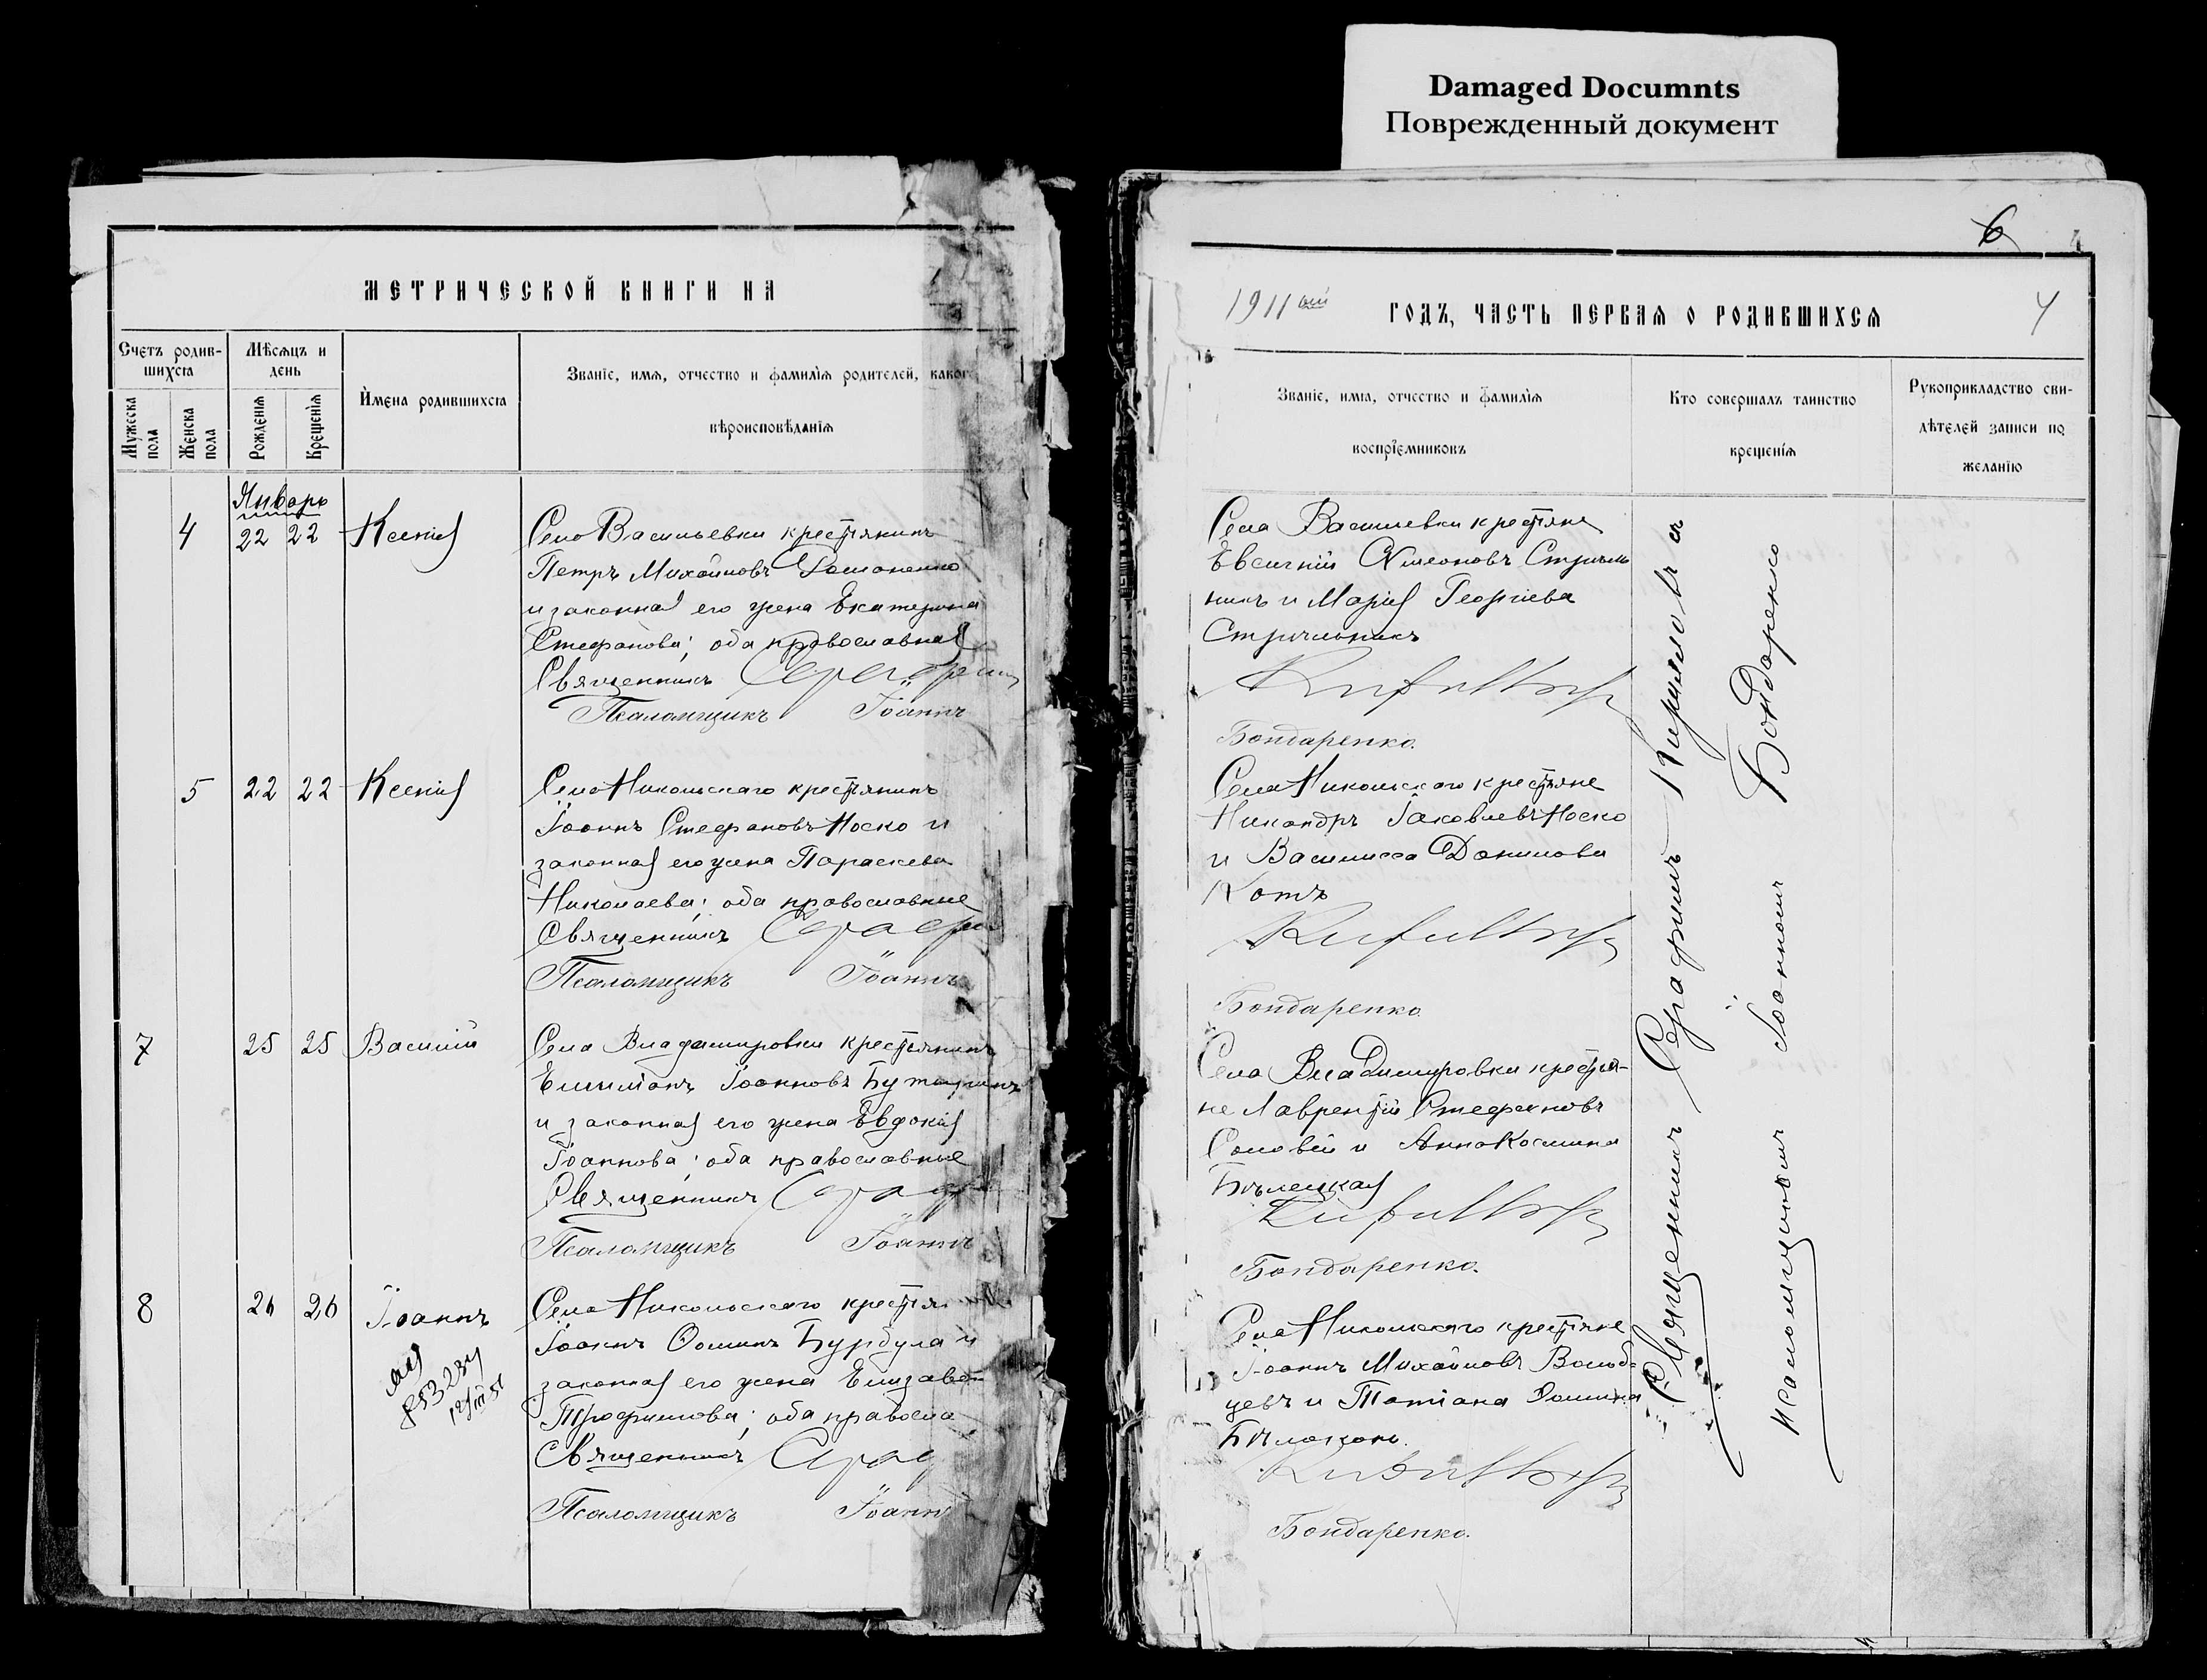 Damaged Documnts
Поврежденный документ
МЕТРИЧЕСКОЙ КНИГИ НА
Счетъ родив-
шихся
Мѣсяцъ и
день
Имена родившихся
Званіе, имя, отчество и фамилія родителей, каког
вѣроисповѣданія
Мужеска
пола
Женска
пола
Рожденія
Крещенія
Январь
4 22 22 Ксенія
Село Васильевки крестянинъ
Петръ Михайловъ
и законная его жена Екатерина
Стефанова; оба православная
Священникъ
Псаломщикъ Іоаннъ
5 22 22 Ксенія
Село Никольскаго крестянинъ
Іоаннъ Стефановъ Носко и
законная его жена Параскева
Николаева; оба православные
Священникъ
Псаломщикъ Іоаннъ
7 25 25 Василій
Села Владимировки крестьянинъ
Іоанновъ
и законная его жена Евдокія
Іоаннова; оба православные
Священникъ
Псаломщикъ Іоаннъ
8 26 26 Іоаннъ
Села Никольскаго крестян
Іоаннъ Ѳоминъ Бурбула и
законная его жена Елизавет
Трофимова; оба правосла
Священникъ
Псаломщикъ Іоанн
6
1911 ый ГОДЪ, ЧАСТЬ ПЕРВАЯ О РОДИВШИХСЯ 4
Званіе, имя, отчество и фамилія
воспріемниковъ
Кто совершалъ таинство
крещенія
Рукоприкладство сви-
дѣтелей записи по
желанію
Села Василевки крестяне
Евсигній Симеоновъ Стриль
никъ и Марія Георгіева
Стрильникъ
Бондаренко.
Села Никольскаго крестяне
Никандръ Іаковлевъ Носко
и Василисса Данилова
Котъ
Бондаренко
Села Владимировки крестья-
не Лаврентій Стефановъ
Соловей и Анна Космина
Бѣлецкая
Бондаренко.
Села Никольскаго крестяне
Іоаннъ Михайловъ
цевъ и Татіана Ѳомина
Бондаренко.
Священникъ Серафимъ
псаломщикомъ Іоанномъ Бондаренко